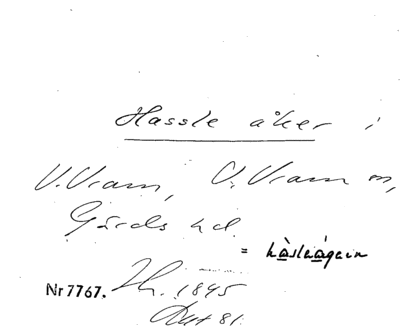 Hassle åker i
V. Vram, V. Vram sn,
Gärds hd.
= hàslaágaɹn
Nr 7767. Th. 1845
Akt 81.